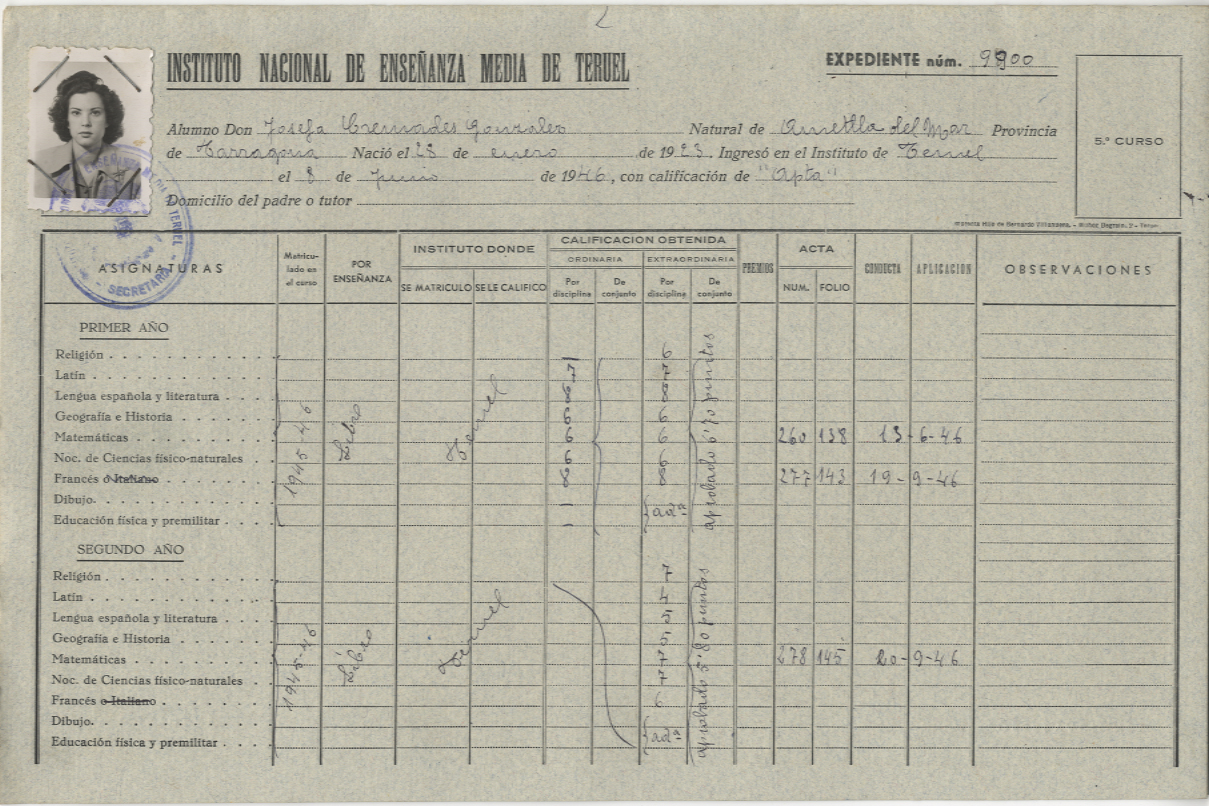 2
INSTITUTO NACIONAL DE ENSEÑANZA MEDIA DE TERUEL
EXPEDIENTE núm. 9900
5.º CURSO
Alumno Don Josefa Cremades Gonzales Natural de Ametlla del Mar Provincia
de Tarragona Nació el 28 de enero de 1923. Ingresó en el Instituto de Teruel
el 8 de Junio de 1946, con calificación de "Apta"
Domicilio del padre o tutor
Imprenta Hijo de Bernardo Villanueva. - Muñoz Degrain, 9 - Teruel
ENSEÑANZA MEDIA DE TERUEL
- SECRETARIA -
ASIGNATURAS
Matriculado en el curso
POR ENSEÑANZA
INSTITUTO DONDE
SE MATRICULO SE LE CALIFICO
CALIFICACION OBTENIDA
ORDINARIA EXTRAORDINARIA
Por disciplina De conjunto Por disciplina De conjunto
PREMIOS
ACTA
NUM. FOLIO
CONDUCTA APLICACION
OBSERVACIONES
PRIMER AÑO
Religión 6
Latín 7 7
Lengua española y literatura 8 8
Geografía e Historia 6 6
Matemáticas 6 6 260 138 13-6-46
Noc. de Ciencias físico-naturales 6 6
Francés o Italiano 8 8 277 143 19-9-46
Dibujo
Educación física y premilitar adª
1945-46
Libre
Teruel
aprobado 6'70 puntos
SEGUNDO AÑO
Religión 7
Latín 4
Lengua española y literatura 5
Geografía e Historia 5
Matemáticas 7 278 145 20-9-46
Noc. de Ciencias físico-naturales 7
Francés o Italiano 6
Dibujo
Educación física y premilitar adª
1945-46
Libre
Teruel
aprobado 5'80 puntos